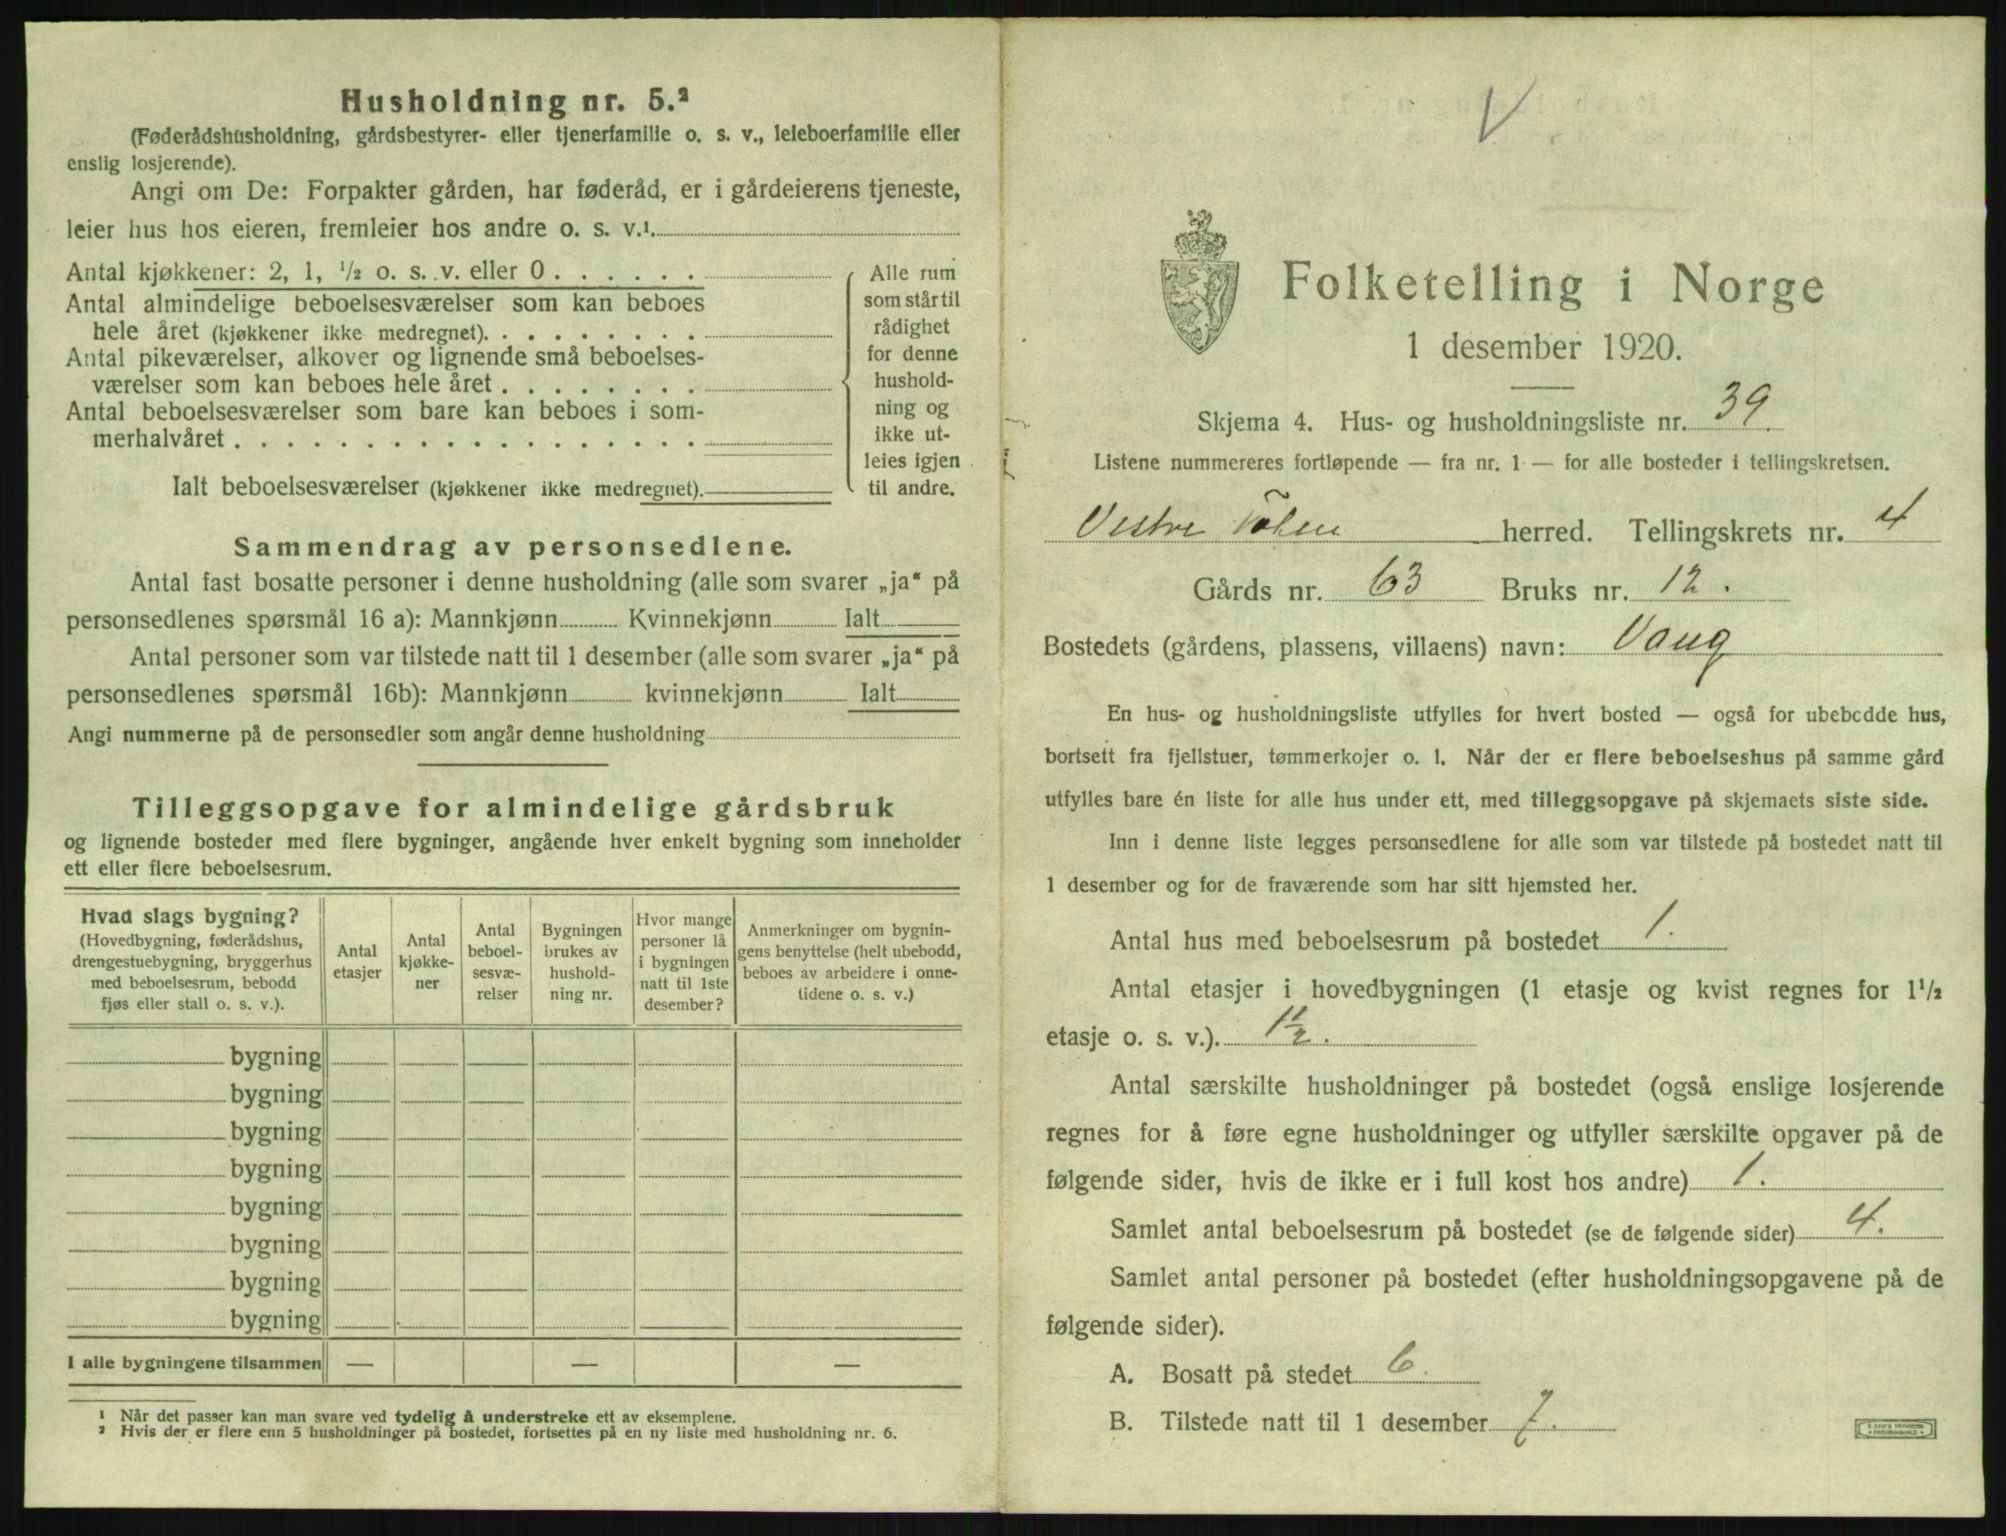 Husholdning nr. 5.²
(Føderådshusholdning, gårdsbestyrer- eller tjenerfamilie o. s. v., leieboerfamilie eller
enslig losjerende).
Angi om De: Forpakter gården, har føderåd, er i gårdeierens tjeneste,
leier hus hos eieren, fremleier hos andre o. s. v.¹
Antal kjøkkener: 2, 1, ½ o. s. v. eller 0 . . . . . .
Antal almindelige beboelsesværelser som kan beboes
hele året (kjøkkener ikke medregnet). . . . . . . . .
Antal pikeværelser, alkover og lignende små beboelses-
værelser som kan beboes hele året . . . . . . . .
Antal beboelsesværelser som bare kan beboes i som-
merhalvåret . . . . . . . . . . . . . . . . . .
Ialt beboelsesværelser (kjøkkener ikke medregnet).
Alle rum
som står til
rådighet
for denne
hushold-
ning og
ikke ut-
leies igjen
til andre.
Sammendrag av personsedlene.
Antal fast bosatte personer i denne husholdning (alle som svarer „ja“ på
personsedlenes spørsmål 16 a): Mannkjønn Kvinnekjønn Ialt
Antal personer som var tilstede natt til 1 desember (alle som svarer „ja“ på
personsedlenes spørsmål 16b): Mannkjønn kvinnekjønn Ialt
Angi nummerne på de personsedler som angår denne husholdning
Tilleggsopgave for almindelige gårdsbruk
og lignende bosteder med flere bygninger, angående hver enkelt bygning som inneholder
ett eller flere beboelsesrum.
Hvad slags bygning?
(Hovedbygning, føderådshus,
drengestuebygning, bryggerhus
med beboelsesrum, bebodd
fjøs eller stall o. s. v.).
Antal
etasjer
Antal
kjøkke-
ner
Antal
beboel-
sesvæ-
relser
Bygningen
brukes av
hushold-
ning nr.
Hvor mange
personer lå
i bygningen
natt til 1ste
desember?
Anmerkninger om bygnin-
gens benyttelse (helt ubebodd,
beboes av arbeidere i onne-
tidene o. s. v.)
bygning
bygning
bygning
bygning
bygning
bygning
bygning
bygning
I alle bygningene tilsammen — — —
¹ Når det passer kan man svare ved tydelig å understreke ett av eksemplene.
² Hvis der er flere enn 5 husholdninger på bostedet, fortsettes på en ny liste med husholdning nr. 6.
V
Folketelling i Norge
1 desember 1920.
Skjema 4. Hus- og husholdningsliste nr. 39.
Listene nummereres fortløpende — fra nr. 1 — for alle bosteder i tellingskretsen.
Vestre herred. Tellingskrets nr. 4
Gårds nr. 63 Bruks nr. 12.
Bostedets (gårdens, plassens, villaens) navn: Vang
En hus- og husholdningsliste utfylles for hvert bosted — også for ubebodde hus,
bortsett fra fjellstuer, tømmerkojer o. l. Når der er flere beboelseshus på samme gård
utfylles bare én liste for alle hus under ett, med tilleggsopgave på skjemaets siste side.
Inn i denne liste legges personsedlene for alle som var tilstede på bostedet natt til
1 desember og for de fraværende som har sitt hjemsted her.
Antal hus med beboelsesrum på bostedet 1.
Antal etasjer i hovedbygningen (1 etasje og kvist regnes for 1½
etasje o. s. v.). 1½.
Antal særskilte husholdninger på bostedet (også enslige losjerende
regnes for å føre egne husholdninger og utfyller særskilte opgaver på de
følgende sider, hvis de ikke er i full kost hos andre) 1.
Samlet antal beboelsesrum på bostedet (se de følgende sider) 4.
Samlet antal personer på bostedet (efter husholdningsopgavene på de
følgende sider).
A. Bosatt på stedet 6.
B. Tilstede natt til 1 desember 7.